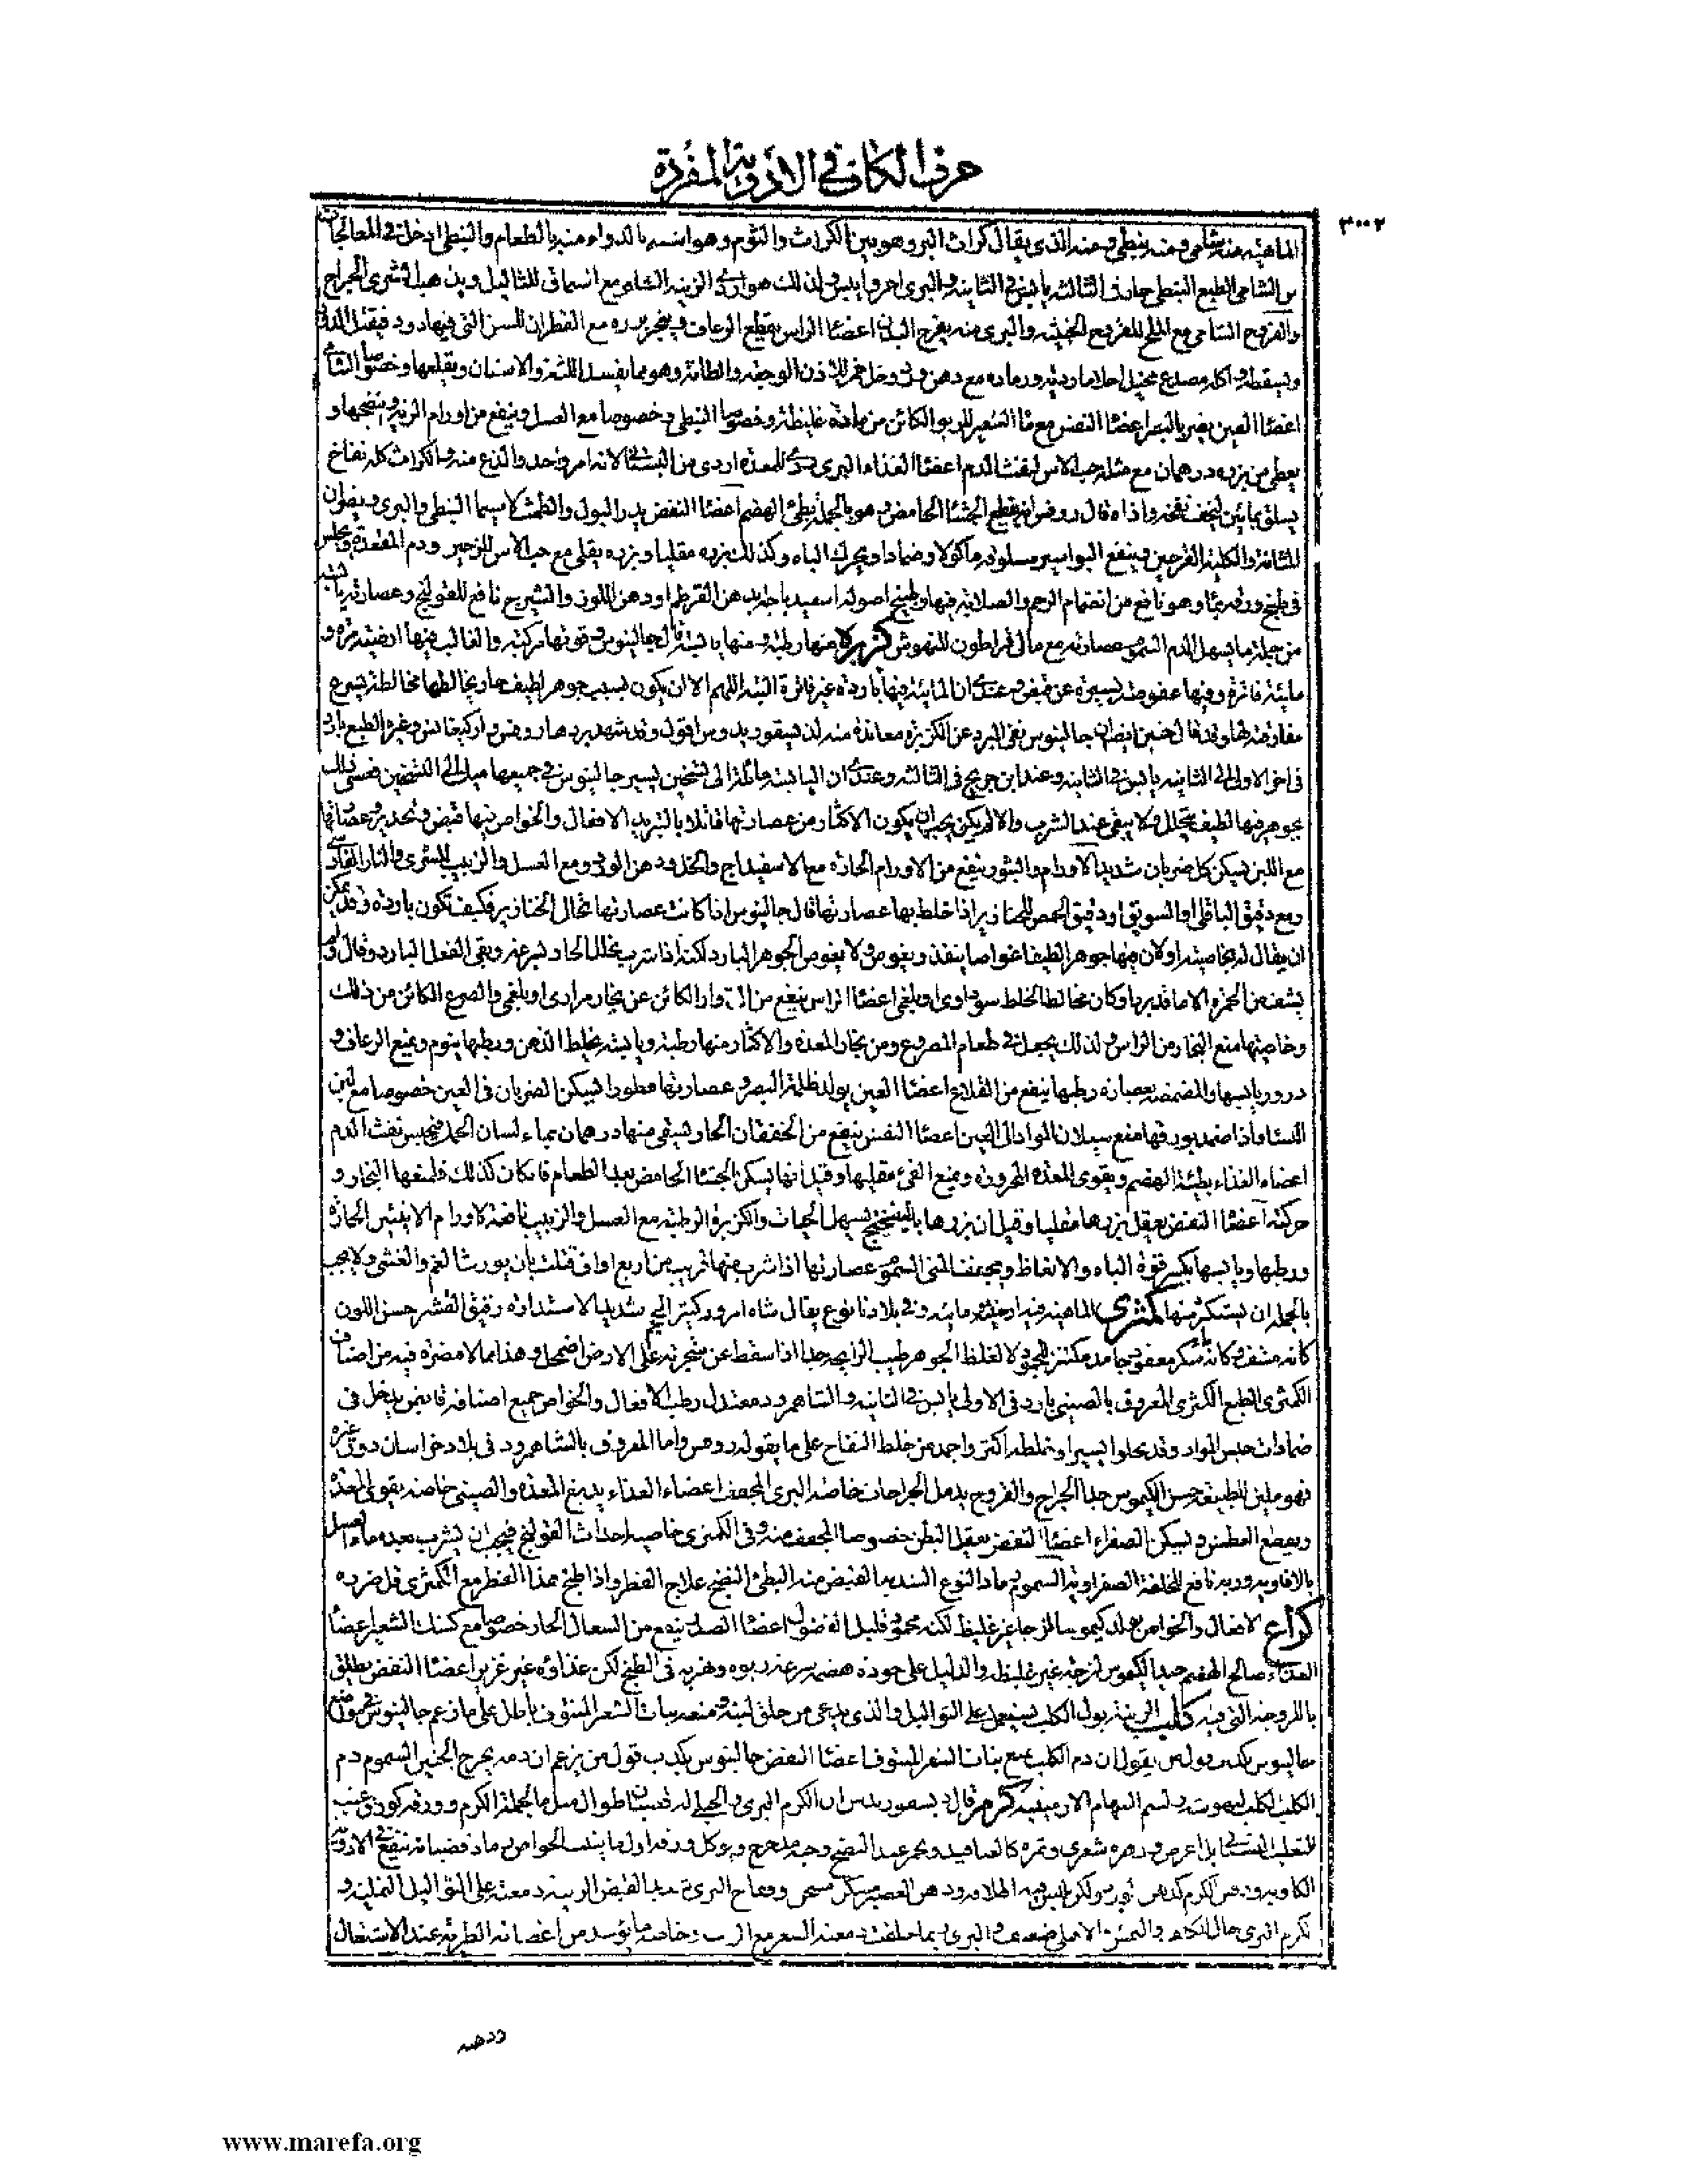 حرف الكاف في الأدوية المفردة
٣٠٠٢
الماهية منه شامي ومنه نبطي ومنه الذي يقال كراث البر وهو بين الكراث والثوم وهو اشبه بالدواء منه بالطعام والنبطي ادخل في المعالجات
من الشامي الطبع النبطي حار في الثالثة يابس في الثانية والبري احر وايبس ولذلك هو اردى الزينة الشامي مع السماق للثاليل ويذهب الشرى الجراح
والقروح الشامي مع الملح للقروح الخبيثة والبري منه يقرح البدن اعضا الراس يقطع الرعاف ويبخر بزره مع القطران للسن التي فيها دود فيقتل الدود
ويسقطه واكله مصدع يخيل احلاما ردية ورماده مع دهن ورد وخل خمر للاذن الوجعة والطانة وهو مما يفسد اللثة والاسنان ويقلعها وخصوصا الشامي
اعضا العين يضر بالبصر اعضا النفس مع ماء الشعير للربو الكائن من مادة غليظة وخصوصا النبطي وخصوصا مع العسل وينفع من اورام الرية وينضجها و
يعطى من بزره درهمان مع مثله حب الاس لنفث الدم اعضا الغذاء البري ردي للمعدة اردى من البستاني لانه امر واحد والذع منه والكراث كله نفاخ
يسلق بمائين ليخف نفخه واذاه قال روفس انه يقطع الجشا الحامض وهو بالجملة بطئ الهضم اعضا النفض يدر البول والطمث لا سيما النبطي والبري ويضران
المثانة والكلية القرحتين وينفع البواسير مسلوقه ماكولا وضمادا ويحرك الباه وكذلك بزره مقليا وبزره يقلى مع حب الاس للزحير ودم المقعدة ويجلس
في طبيخ ورقه بماء وهو نافع من انضمام الرحم والصلابة فيها وطبيخ اصوله اسفيدباجا بدهن القرطم او دهن اللوز والشيرج نافع للقولنج وعصارته يابسه
من جملة ما يسهل الدم السموم عصارته مع مالي قراطون للنهوش كزبرة منها رطبة ومنها يابسة قال جالينوس وقوتها مركبة والغالب فيها ارضية مرة و
مائية فاترة وفيها عفوصة يسيرة عن قبض وعندي ان المائية فيها باردة غير فاترة البتة اللهم الا ان يكون بسبب جوهر لطيف حار يخالطها مخالطة يسرع
مفارقته لها وقد قال حنين ايضا ان جالينوس نفى البرد عن الكزبرة معاندة منه لديسقوريدوس اقول وقد شهد ببردها روفس واركيغانس وغيره الطبع بارد
في اخر الاولى الى الثانية يابس في الثانية وعند ابن جريج في الثالثة وعندي ان اليابسة مائلة الى تسخين يسير جالينوس في جميعها ميل الى التسخين فعسى ذلك
بجوهر فيها لطيف يتحلل ولا يبقى عند الشرب والا لم يكن يجب ان يكون الاكثار من عصارتها قاتلا بالتبريد الافعال والخواص فيها قبض وتخدير وعصارتها
مع اللبن يسكن كل ضربان شديد الاورام والبثور ينفع من الاورام الحارة مع الاسفيداج والخل ودهن الورد ومع العسل والزبيب للشرى والنار الفارسي
ومع دقيق الباقلى او السويق او دقيق الحمص للخنازير اذا خلط بها عصارتها قال جالينوس اذا كانت عصارتها تحلل الخنازير فكيف تكون باردة وقد يمكن
ان يقال لخاصية او لان فيها جوهرا لطيفا غواصا ينفذ ويغوص ولا يغوص الجوهر البارد لكنه اذا شرب يتحلل الحار بسرعة وبقي الفعل البارد وقال ولم
يشف من الحمرة الا ما قد برد او كان مخالطا لخلط سوداوي او بلغمي اعضا الراس ينفع من الدوار الكائن عن بخار مراري او بلغمي والصرع الكائن من ذلك
وخاصيتها منع البخار من الراس ولذلك يجعل في طعام المصروع ومن بخار المعدة والاكثار منها رطبة ويابسة يخلط الذهن ورطبها ينوم ويمنع الرعاف و
درور يابسها والمضمضة بعصارة رطبها ينفع من القلاع اعضا العين يولد ظلمة البصر وعصارتها قطورا يسكن الضربان في العين خصوصا مع لبن
النسا واذا ضمد بورقها منع سيلان المواد الى العين اعضا النفس ينفع من الخفقان الحار يسقى منها درهمان بماء لسان الحمل فيحبس نفث الدم
اعضاء الغذاء بطيئة الهضم ويقوي المعدة المحرورة ويمنع القئ مقليها وقيل انها يسكن الجشا الحامض بعد الطعام فان كان كذلك فلمنعها البخار و
حركته اعضا النفض يعقل بزرها مقليا وقيل ان بزرها بالميبختج يسهل الحيات والكزبرة الرطبة مع العسل والزبيب نافعة لاورام الانثيين الحارة
ورطبها ويابسها يكسر قوة الباه والانعاظ ويجفف المنى السموم عصارتها اذا شرب منها قريب من اربع اواق قتلت بان يورث الغم والغشى ولا يجب
بالجملة ان يستكثر منها كمثري الماهية فيه ارضية ومائية وفي بلادنا نوع يقال شاه امرود كبير الحجم شديد الاستدارة رقيق القشر حسن اللون
كانه مشف وكانه سكر معقود جامد مكتنز للجمود لا لغلظ الجوهر طيب الرايحة جدا اذا سقط عن شجرته على الارض اضمحل وهذا مما لا مضرة فيه من اصناف
الكمثرى الطبع الكمثرى المعروف بالصيني بارد في الاولى يابس في الثانية والشاهمرود معتدل رطب الافعال والخواص جميع اصنافه قابض يدخل في
ضمادات حبس المواد وقد يجلو اليسير او خلطه اكثر واجمد من خلط التفاح على ما يقوله روفس واما المعروف بالشاهمرود في بلاد خراسان دون غيره
فهو ملين للطبيعة حسن الكيموس جدا الجراح والقروح يدمل الجراحات خاصة البري المجفف اعضاء الغذاء يدبغ المعدة والصيني خاصة يقوي المعدة
ويقطع العطش ويسكن الصفراء اعضا النفض يعقل البطن خصوصا المجفف منه وفي الكمثرى خاصية احداث القولنج فيجب ان يشرب بعده ماء العسل
بالافاويه وربه نافع للخلفة الصفراوية السموم رماد النوع الشديد القبض منه البطئ النضج علاج الفطر واذا طبخ هذا الفطر مع الكمثرى قل ضرره
كراع الافعال والخواص يولد كيموسا لزجا غير غليظ لكنه محمود قليل الفضول اعضا الصدر ينفع من السعال الحار خصوصا مع كشك الشعير اعضا
الغذاء صالح الهضم جيد الكيموس لزجه غير غليظه والدليل على جودة هضمه سرعة ربوه وتهريه في الطبخ لكن غذاؤه غير غزير اعضا النفض يطلق
باللزوجة التي فيه كلب الزينة بول الكلب يستعمل على الثواليل والذي يدعى من حلق لبنه ومنعه نبات الشعر المنتوف باطل على ما زعم جالينوس في
جالينوس يكذب من يقول ان دم الكلب يمنع نبات الشعر المنتوف اعضا النفض جالينوس يكذب قول من يزعم ان دمه يخرج الجنين السموم دم
الكلب الكلب ليموت ولسم السهام الارمينية كرم قال ديسقوريدس ان الكرم البري والجبلي له قضبان طوال مثل ما لجملة الكرم وورقه كورق عنب
الثعلب البستاني بل اعرض وزهره شعري وثمره كالعناقيد ويحمر عند النضج وحبه مدحرج ويوكل ورقه اول ما ينبت الخواص رماد قضبانه ينفع في الادوية
الكاوية ودهن الكرم كدهن
ودهنه
www.marefa.org